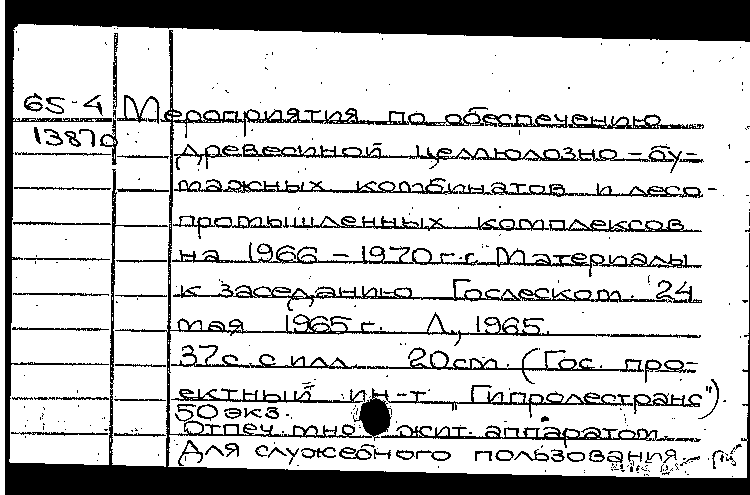 65-4 Мероприятия по обеспечению
13870
древесиной целлюлозно-бу-
мажных комбинатов и лесо-
промышленных комплексов
на 1966-1970 г.г. Материалы
к заседанию Гослеском. 24
мая 1965 г. Л., 1965.
37 с. с илл. 20 см. (Гос. про-
ектный ин-т "Гипролестранс").
50 экз.
Отпеч. множит. аппаратом.
Для служебного пользования.